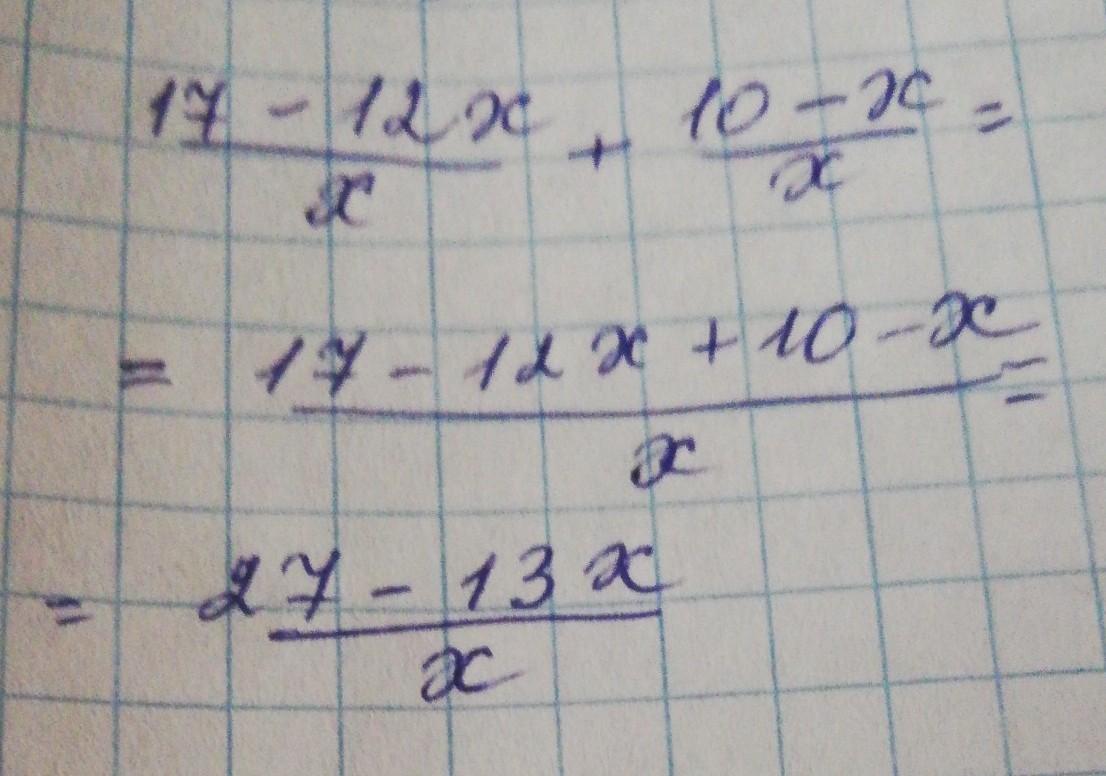 \frac{17 - 12x}{x} + \frac{10 - x}{x} =
= \frac{17 - 12x + 10 - x}{x} =
= \frac{27 - 13x}{x}